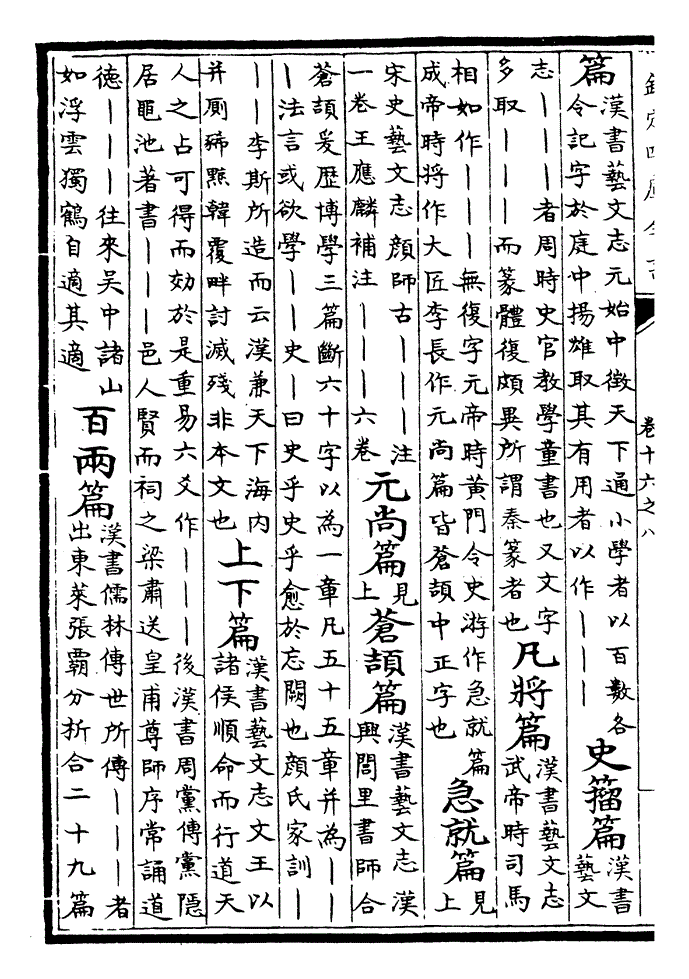 欽定四庫全書
卷十六之八
篇
漢書藝文志元始中徵天下通小學者以百數各
令記字於庭中揚雄取其有用者以作丨丨丨
史籀篇
漢書
藝文
志丨丨丨者周時史官教學童書也又文字
多取丨丨丨而篆體復頗異所謂秦篆者也
凡將篇
漢書藝文志
武帝時司馬
相如作丨丨丨無復字元帝時黃門令史游作急就篇
成帝時將作大匠李長作元尚篇皆蒼頡中正字也
急就篇
見
上
宋史藝文志顏師古丨丨丨注
一卷王應麟補注丨丨丨六卷
元尚篇
見
上
蒼頡篇
漢書藝文志漢
興閭里書師合
蒼頡爰歷博學三篇斷六十字以為一章凡五十五章并為丨丨
丨法言或欲學丨丨史丨曰史乎史乎愈於忘闕也顏氏家訓丨
丨丨李斯所造而云漢兼天下海内
并厠豨黥韓覆畔討滅殘非本文也
上下篇
漢書藝文志文王以
諸侯順命而行道天
人之占可得而効於是重易六爻作丨丨丨後漢書周黨傳黨隱
居黽池著書丨丨丨邑人賢而祠之梁肅送皇甫尊師序常誦道
德丨丨丨往來吳中諸山
如浮雲獨鶴自適其適
百兩篇
漢書儒林傳世所傳丨丨丨者
出東萊張霸分折合二十九篇